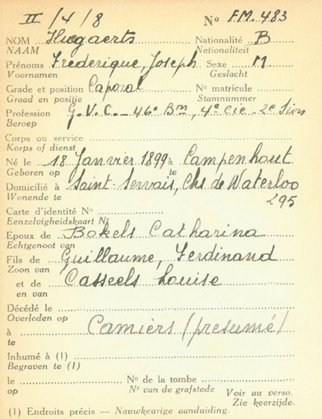 II/4/8 No FM. 483
NOM Hoogaerts Nationalité B
NAAM Nationaliteit
Prénoms Frederique, Joseph Sexe M
Voornamen Geslacht
Grade et position Caporal No matricule
Graad en positie Stamnummer
Profession G.V.C. - 46e Bm, 4e Cie - 2e
Beroep
Corps ou service
Korps of dienst
Né le 18 Janvier 1899 à Campenhout
Geboren op te
Domicilié à Saint-Servais, Chs de Waterloo
Wonende te 295
Carte d'identité No
Eenzelvigheidskaart Nr
Epoux de Bokels Catharina
Echtgenoot van
Fils de Guillaume, Ferdinand
Zoon van
et de Casseels Louise
en van
Décédé le
Overleden op
à Camiers (presumé)
te
Inhumé à (1)
Begraven te (1)
le No de la tombe
op Nr van de grafstede
Voir au verso.
Zie keerzijde.
(1) Endroits précis — Nauwkeurige aanduiding.